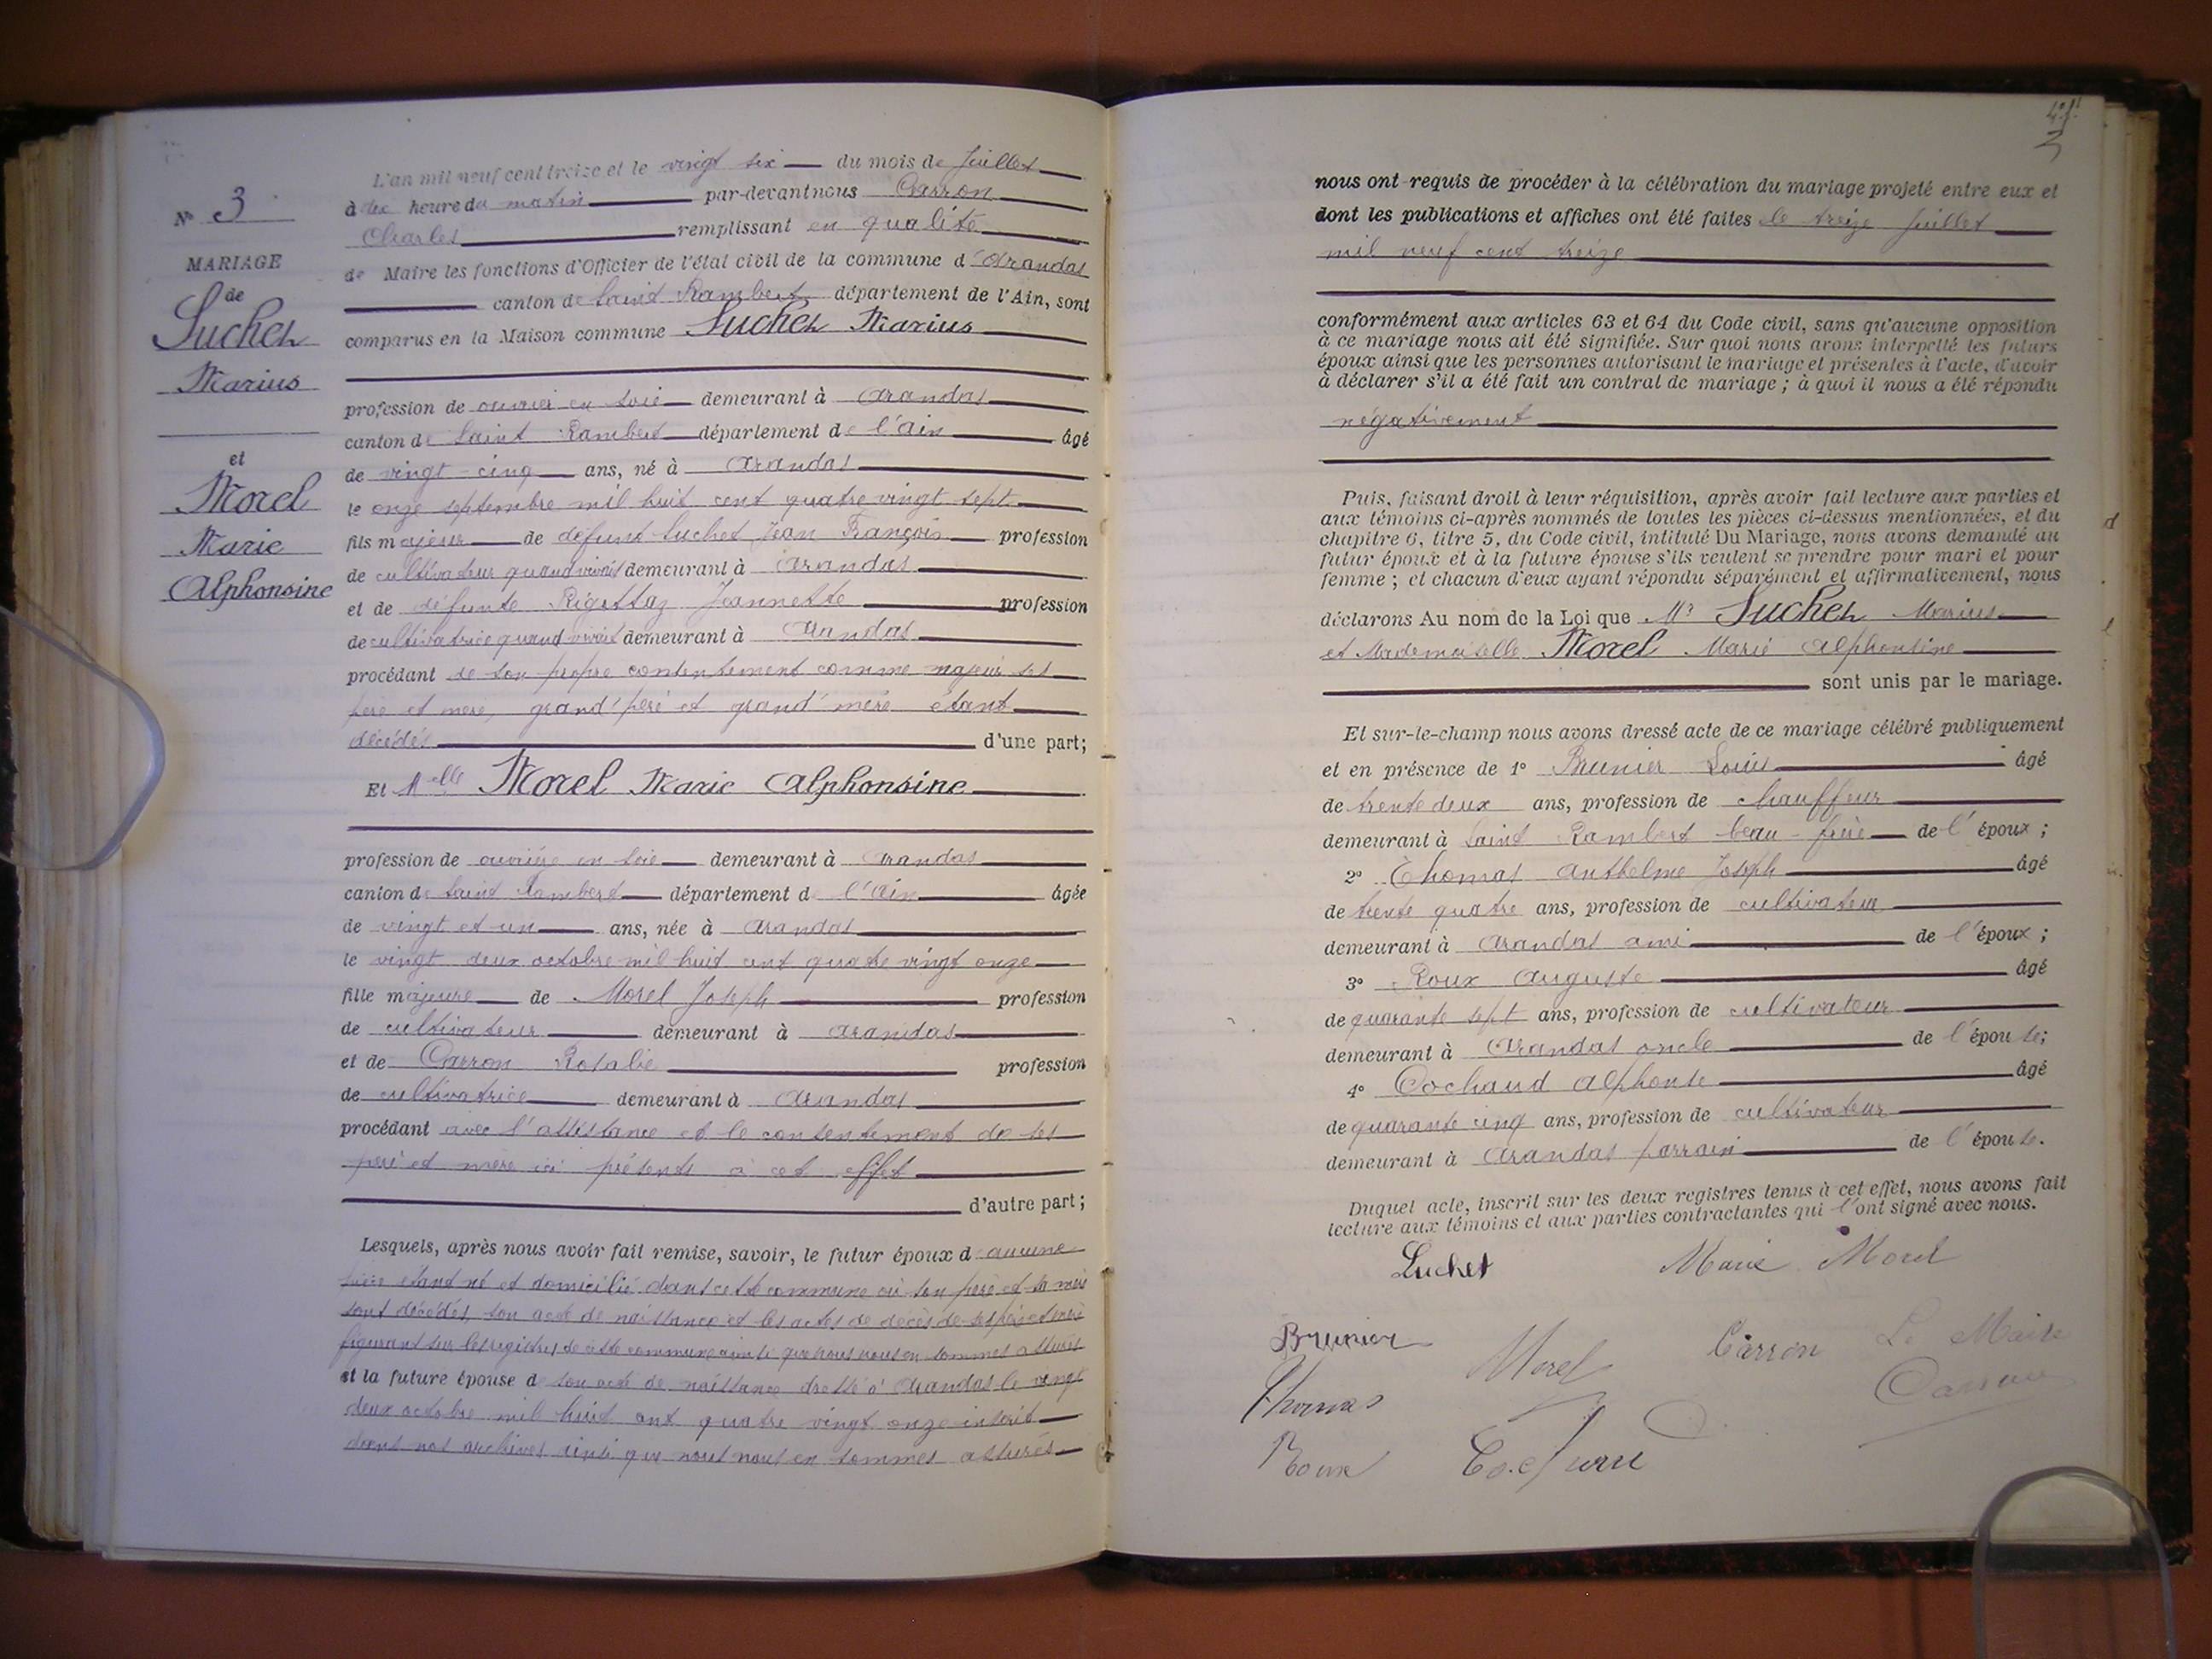 N° 3
MARIAGE
de
Suchet
Marius
et
Morel
Marie
Alphonsine
L'an mil neuf cent treize et le vingt six du mois de Juillet
à dix heure du matin par-devant nous Carron
Charles remplissant en qualité
de Maire les fonctions d'Officier de l'état civil de la commune d'Arandas
canton de Saint Rambert département de l'Ain, sont
comparus en la Maison commune Suchet Marius
profession de ouvrier en soie demeurant à Arandas
canton de Saint Rambert département de l'Ain âgé
de vingt-cinq ans, né à Arandas
le onze septembre mil huit cent quatre vingt sept
fils majeur de défunt Suchet Jean François profession
de cultivateur quand vivait demeurant à Arandas
et de défunte Rigottaz Jeannette profession
de cultivatrice quand vivait demeurant à Arandas
procédant de son propre consentement comme majeur ses
père et mère, grand'père et grand'mère étant
décédés d'une part;
Et Melle Morel Marie Alphonsine
profession de ouvrière en soie demeurant à Arandas
canton de Saint Rambert département de l'Ain âgée
de vingt et un ans, née à Arandas
le vingt deux octobre mil huit cent quatre vingt onze
fille majeure de Morel Joseph profession
de cultivateur demeurant à Arandas
et de Carron Rosalie profession
de cultivatrice demeurant à Arandas
procédant avec l'assistance et le consentement de ses
père et mère ici présents à cet effet
d'autre part;
Lesquels, après nous avoir fait remise, savoir, le futur époux d'aucune
pièce étant né et domicilié dans cette commune où son père et sa mère
sont décédés, son acte de naissance et les actes de décès de ses père et mère
figurant sur les registres de cette commune ainsi que nous nous en sommes assurés
et la future épouse de son acte de naissance dressé à Arandas le vingt
deux octobre mil huit cent quatre vingt onze inscrit
dans nos archives ainsi que nous nous en sommes assurés
nous ont requis de procéder à la célébration du mariage projeté entre eux et
dont les publications et affiches ont été faites le treize Juillet
mil neuf cent treize
conformément aux articles 63 et 64 du Code civil, sans qu'aucune opposition
à ce mariage nous ait été signifiée. Sur quoi nous avons interpellé les futurs
époux ainsi que les personnes autorisant le mariage et présentes à l'acte, d'avoir
à déclarer s'il a été fait un contrat de mariage; à quoi il nous a été répondu
négativement
Puis, faisant droit à leur réquisition, après avoir fait lecture aux parties et
aux témoins ci-après nommés de toutes les pièces ci-dessus mentionnées, et du
chapitre 6, titre 5, du Code civil, intitulé Du Mariage, nous avons demandé au
futur époux et à la future épouse s'ils veulent se prendre pour mari et pour
femme; et chacun d'eux ayant répondu séparément et affirmativement, nous
déclarons Au nom de la Loi que Mr Suchet Marius
et Mademoiselle Morel Marie Alphonsine
sont unis par le mariage.
Et sur-le-champ nous avons dressé acte de ce mariage célébré publiquement
et en présence de 1° Brunier Louis âgé
de trente deux ans, profession de chauffeur
demeurant à Saint Rambert beau-frère de l'époux;
2° Thomas Anthelme Joseph âgé
de trente quatre ans, profession de cultivateur
demeurant à Arandas ami de l'époux;
3° Roux Auguste âgé
de quarante sept ans, profession de cultivateur
demeurant à Arandas oncle de l'épouse;
4° Cochaud Alphonse âgé
de quarante cinq ans, profession de cultivateur
demeurant à Arandas parrain de l'épouse.
Duquel acte, inscrit sur les deux registres tenus à cet effet, nous avons fait
lecture aux témoins et aux parties contractantes qui l'ont signé avec nous.
Suchet Marie Morel
Brunier Morel Carron Le Maire
Thomas Carron
Roux